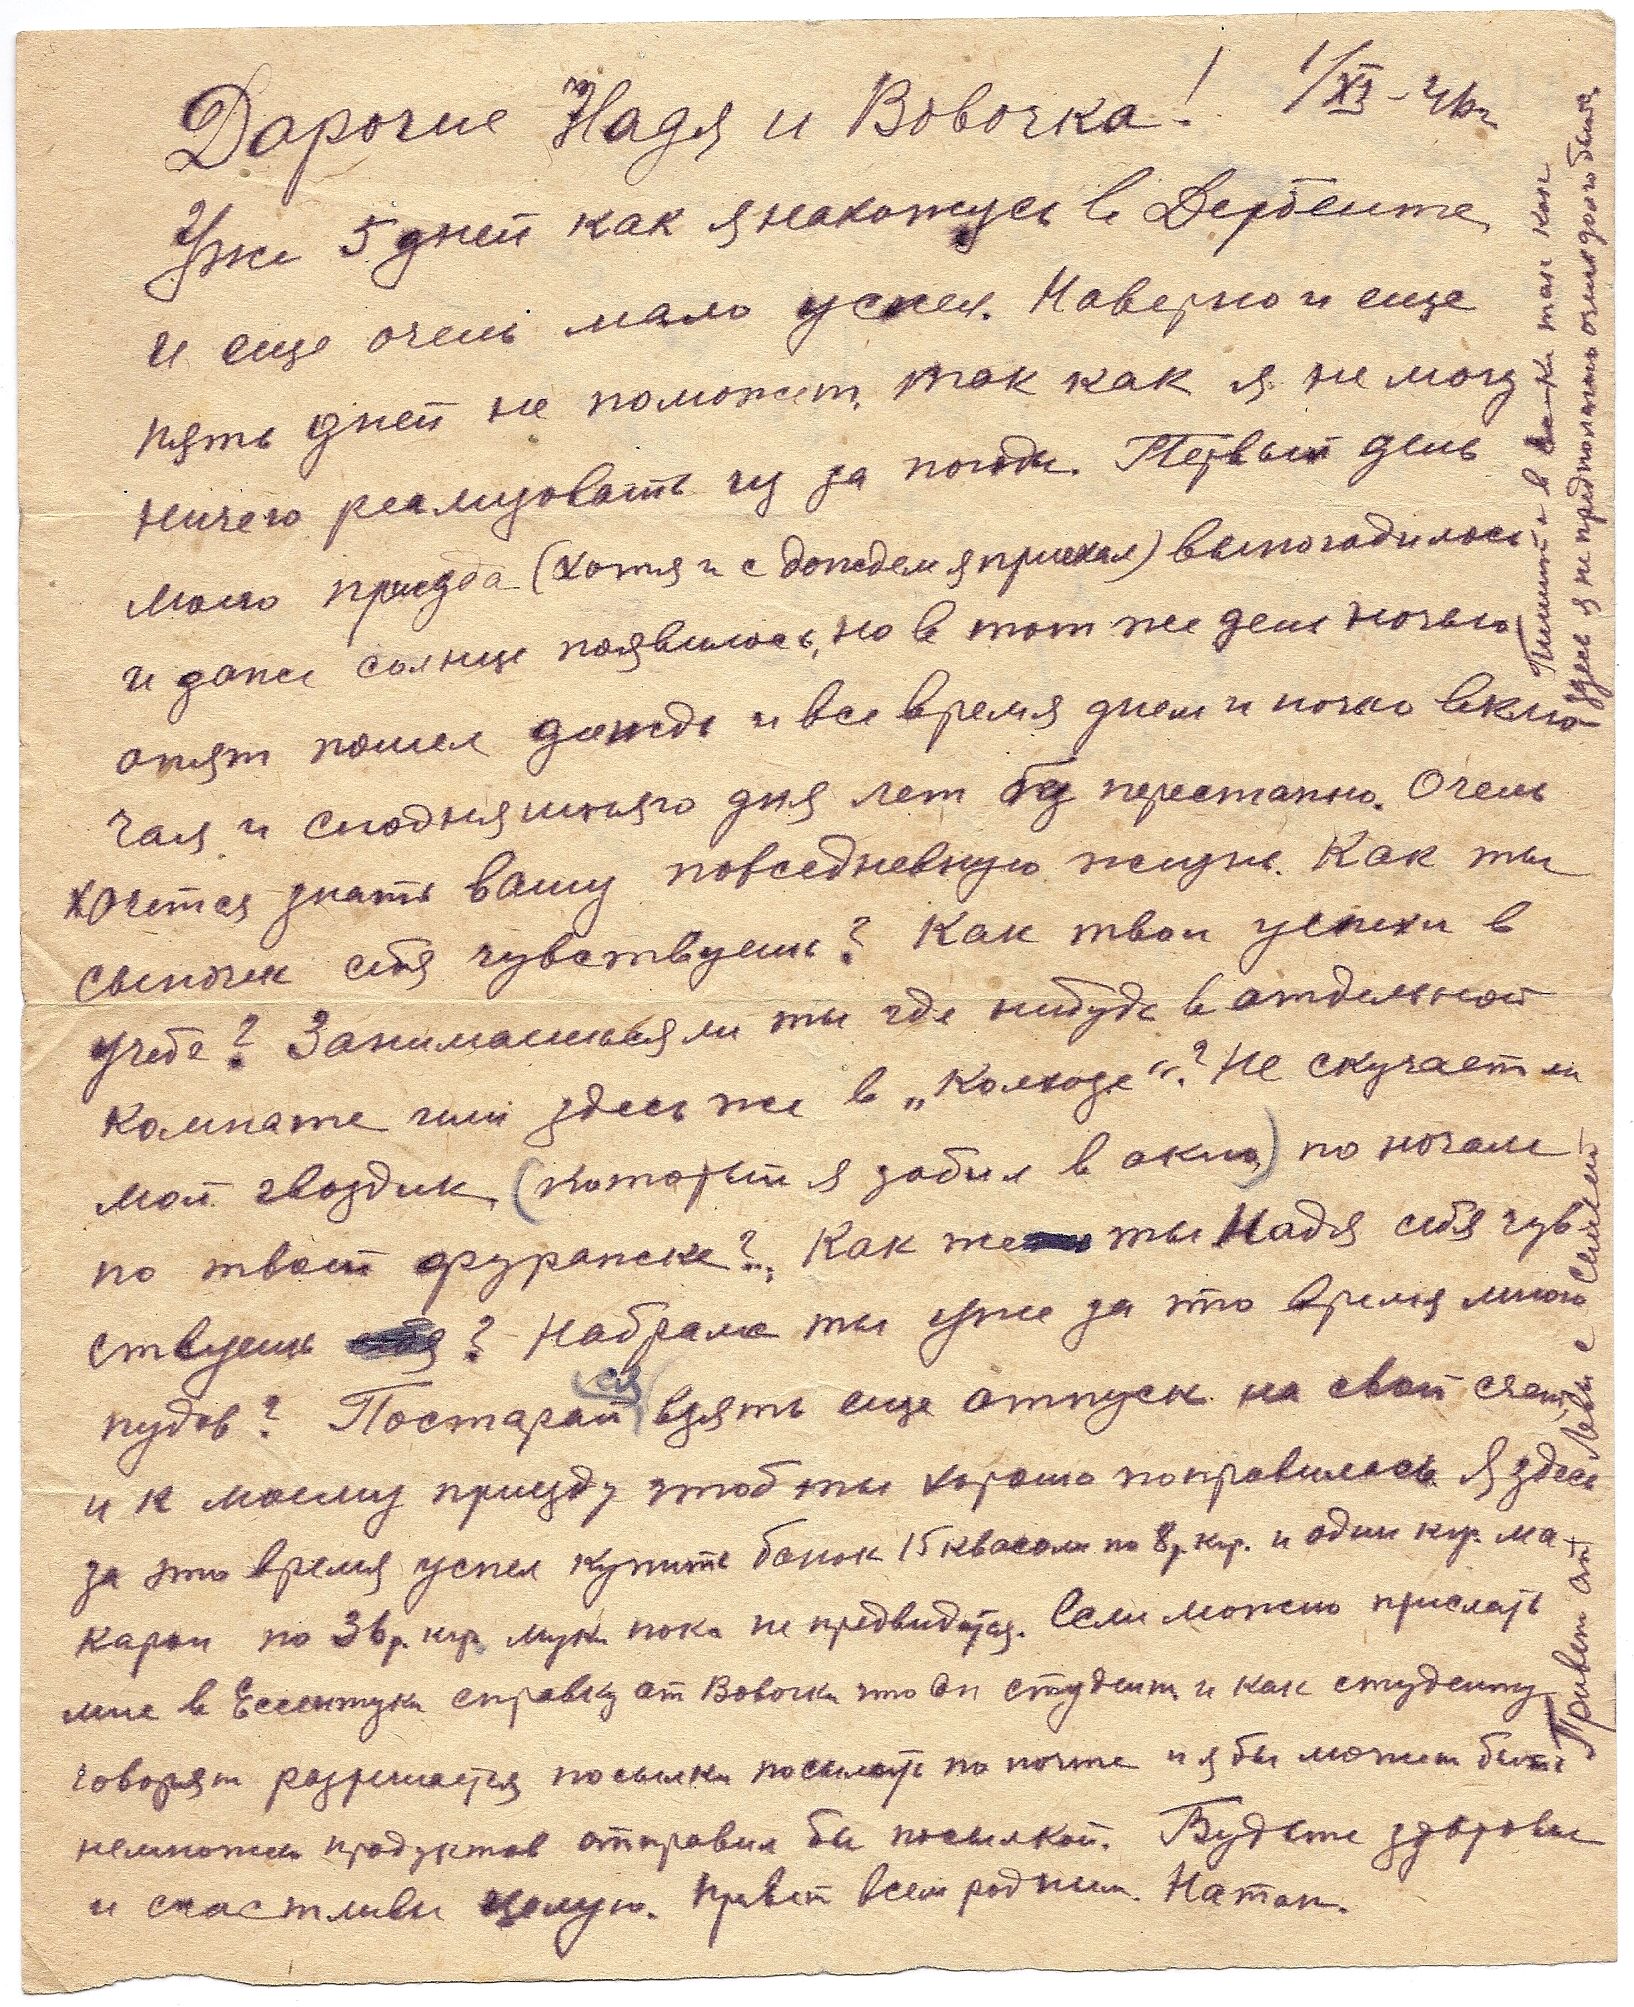 1/XI-46г.
Дарогие Надя и Вовочка!
Уже 5 дней как я нахожусь в Дербенте,
и еще очень мало успел. Наверно и еще
пять дней не поможет, так как я не могу
ничего реализовать из за погоды. Первый день
моего приезда (хотя и с дождем я приехал) выпогодилось
и даже солнце появилось, но в тот же день ночью
опят пошел дождь и все время днем и ночю вклю-
чая и сегодняшняго дня лет без перестанно. Очень
хочется знать вашу повседневную жизнь. Как ты
сыночек себя чувствуешь? Как твои успехи в
учебе? Занимаешься ли ты где нибудь в отдельной
комнате или здесь же в „Колхозе“? Не скучает ли
мой гвоздик, (который я забил в окно) по ночам
по твоей фуражке? Как же ты Надя себя чув
ствуешь ? Набрала ты уже за это время много
пудов? Постарайся взять еще отпуск на свой счет,
и к моему приезду чтоб ты хорошо поправилась. Я здесь
за это время успел купить банок 15 квасоли по 8 р. кгр. и один кгр. ма-
карон по 36 р. кгр. муки пока не предвидится. Если можно прислать
мне в Ессентуки справку от Вовочки что он студент и как студенту
говорят разрешается посылки посылать по почте и я бы может быть
немножко продуктов отправил бы посылкой. Будьте здоровы
и счастливы целую. Привет всем родным. Натан.
Привет от Левы с семьей
Пишите в так как
здесь я не предполагаю очень долго быть